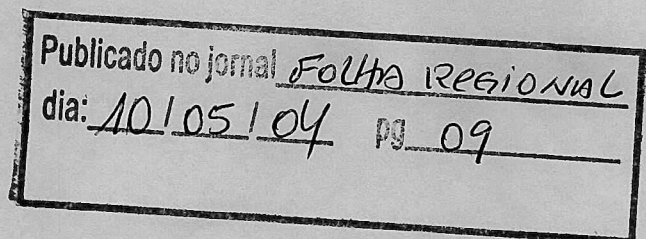 Publicado no jornal FOLHA REGIONAL
dia: 10/05/04 pg 09